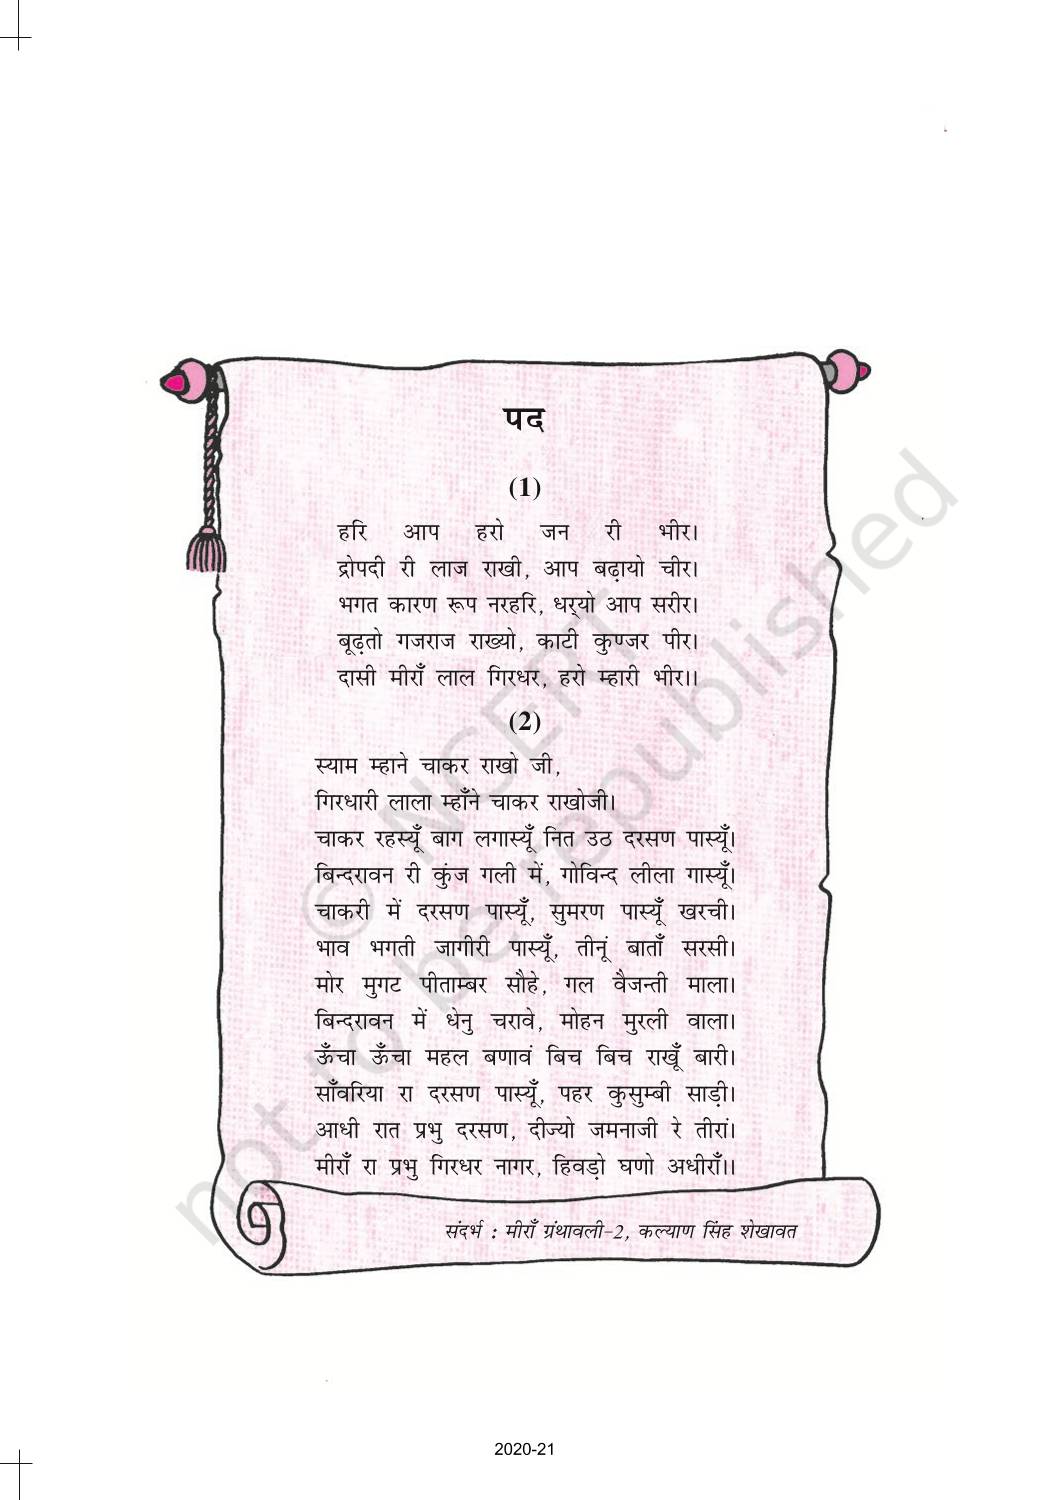 पद
(1)
हरि आप हरो जन री भीर।
द्रोपदी री लाज राखी, आप बढ़ायो चीर।
भगत कारण रूप नरहरि, धर्‌यो आप सरीर।
बूढ़तो गजराज राख्यो, काटी कुण्जर पीर।
दासी मीराँ लाल गिरधर, हरो म्हारी भीर।।
(2)
स्याम म्हाने चाकर राखो जी,
गिरधारी लाला म्हाँने चाकर राखोजी।
चाकर रहस्यूँ बाग लगास्यूँ नित उठ दरसण पास्यूँ।
बिन्दरावन री कुंज गली में, गोविन्द लीला गास्यूँ।
चाकरी में दरसण पास्यूँ, सुमरण पास्यूँ खरची।
भाव भगती जागीरी पास्यूँ, तीनूं बाताँ सरसी।
मोर मुगट पीताम्बर सौहे, गल वैजन्ती माला।
बिन्दरावन में धेनु चरावे, मोहन मुरली वाला।
ऊँचा ऊँचा महल बणावं बिच बिच राखूँ बारी।
साँवरिया रा दरसण पास्यूँ, पहर कुसुम्बी साड़ी।
आधी रात प्रभु दरसण, दीज्यो जमनाजी रे तीरां।
मीराँ रा प्रभु गिरधर नागर, हिवड़ो घणो अधीराँ।।
संदर्भ : मीराँ ग्रंथावली-2, कल्याण सिंह शेखावत
© NCERT
not to be republished
2020-21